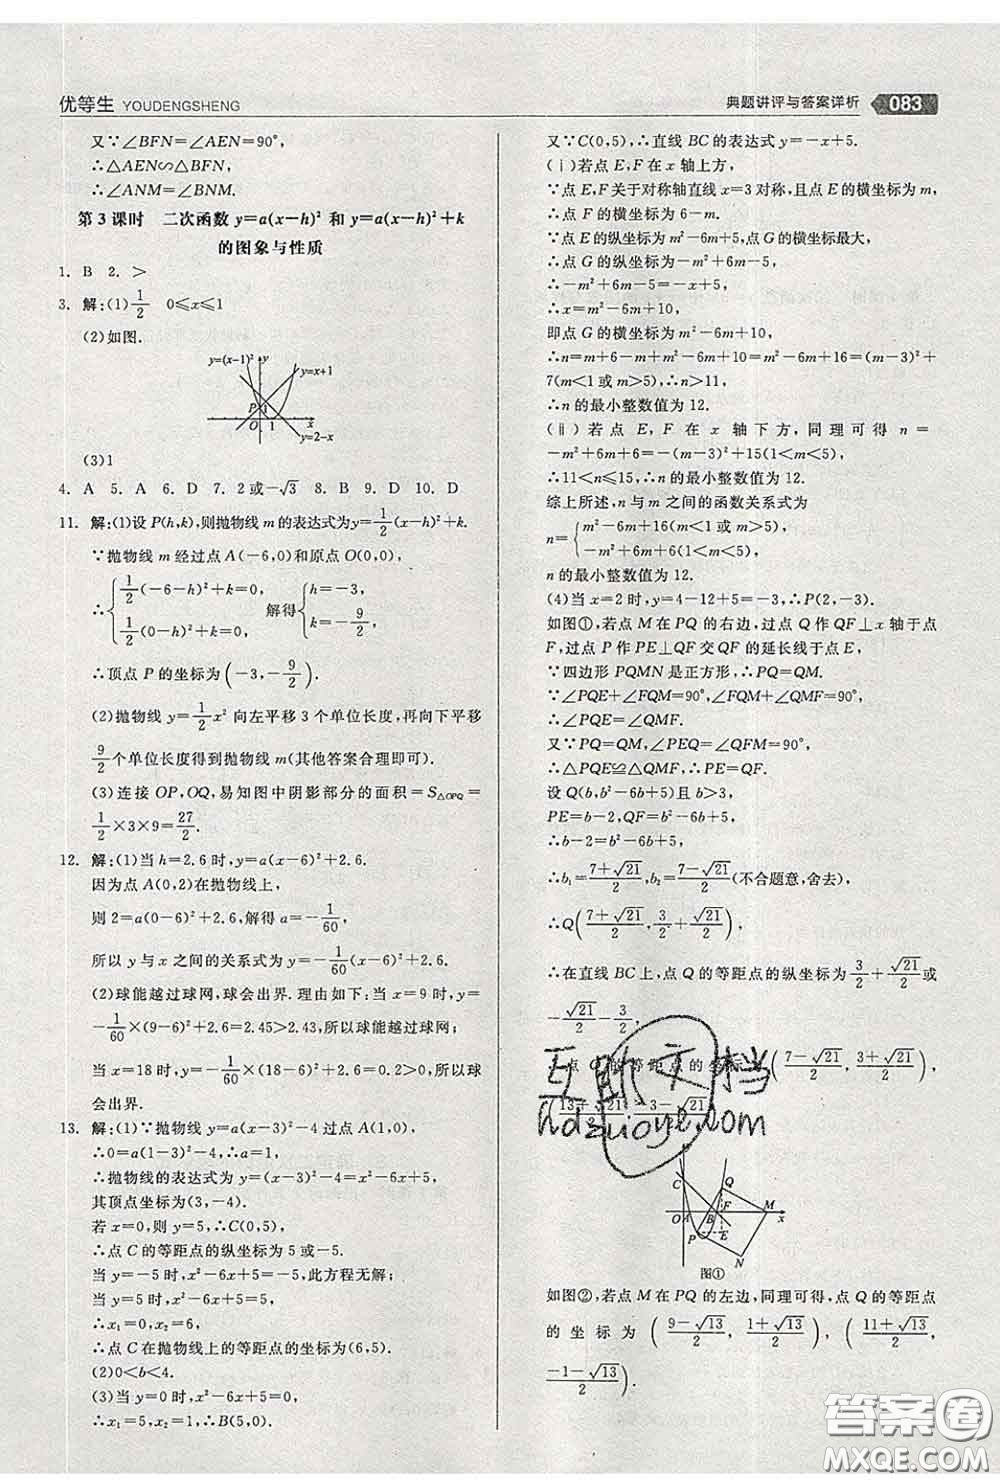 优等生 YOUDENGSHENG
典题讲评与答案详析 083
又∵∠BFN=∠AEN=90°,
∴△AEN∽△BFN.
∴∠ANM=∠BNM.
第3课时 二次函数 y=a(x-h)² 和 y=a(x-h)²+k
的图象与性质
1. B 2. >
3. 解:(1)1/2 0≤x≤1
(2)如图.
y=(x-1)² y y=x+1
P 1
O 1 x
y=2-x
(3)1
4. A 5. A 6. D 7. 2或-√3 8. B 9. D 10. D
11. 解:(1)设P(h,k),则抛物线m的表达式为y=1/2(x-h)²+k.
∵抛物线m经过点A(-6,0)和原点O(0,0),
∴{1/2(-6-h)²+k=0, 1/2(0-h)²+k=0, 解得{h=-3, k=-9/2.
∴顶点P的坐标为(-3,-9/2).
(2)抛物线y=1/2x²向左平移3个单位长度,再向下平移
9/2个单位长度得到抛物线m(其他答案合理即可).
(3)连接OP,OQ,易知图中阴影部分的面积=S△OPQ=
1/2×3×9=27/2.
12. 解:(1)当h=2.6时,y=a(x-6)²+2.6.
因为点A(0,2)在抛物线上,
则2=a(0-6)²+2.6,解得a=-1/60,
所以y与x之间的关系式为y=-1/60(x-6)²+2.6.
(2)球能越过球网,球会出界.理由如下:当x=9时,y=
-1/60×(9-6)²+2.6=2.45>2.43,所以球能越过球网;
当x=18时,y=-1/60×(18-6)²+2.6=0.2>0,所以球
会出界.
13. 解:(1)∵抛物线y=a(x-3)²-4过点A(1,0),
∴0=a(1-3)²-4,∴a=1.
∴抛物线的表达式为y=(x-3)²-4=x²-6x+5,
其顶点坐标为(3,-4).
若x=0,则y=5,∴C(0,5).
∴点C的等距点的纵坐标为5或-5.
当y=-5时,x²-6x+5=-5,此方程无解;
当y=5时,x²-6x+5=5,
∴x₁=0,x₂=6,
∴点C在抛物线上的等距点的坐标为(6,5).
(2)0<b<4.
(3)当y=0时,x²-6x+5=0,
∴x₁=1,x₂=5,∴B(5,0).
又∵C(0,5),∴直线BC的表达式y=-x+5.
(ⅰ)若点E,F在x轴上方,
∵点E,F关于对称轴直线x=3对称,且点E的横坐标为m,
∴点F的横坐标为6-m.
∵点E的纵坐标为m²-6m+5,点G的横坐标最大,
∴点G的纵坐标为-m²+6m-5,
∴-m²+6m-5=-x+5,
∴x=m²-6m+10,
即点G的横坐标为m²-6m+10,
∴n=m+6-m+m²-6m+10=m²-6m+16=(m-3)²+
7(m<1或m>5),∴n>11,
∴n的最小整数值为12.
(ⅱ)若点E,F在x轴下方,同理可得n=
-m²+6m+6=-(m-3)²+15(1<m<5),
∴11<n≤15,∴n的最小整数值为12.
综上所述,n与m之间的函数关系式为
n={m²-6m+16(m<1或m>5), -m²+6m+6(1<m<5),
n的最小整数值为12.
(4)当x=2时,y=4-12+5=-3,∴P(2,-3).
如图①,若点M在PQ的右边,过点Q作QF⊥x轴于点
F,过点P作PE⊥QF交QF的延长线于点E,
∵四边形PQMN是正方形,∴PQ=QM.
∵∠PQE+∠FQM=90°,∠FQM+∠QMF=90°,
∴∠PQE=∠QMF.
又∵PQ=QM,∠PEQ=∠QFM=90°,
∴△PQE≌△QMF,∴PE=QF.
设Q(b,b²-6b+5)且b>3,
PE=b-2,QF=b²-6b+5,
∴b-2=b²-6b+5,
∴b₁=(7+√21)/2,b₂=(7-√21)/2(不合题意,舍去),
∴Q((7+√21)/2,3/2+√21/2),
∴在直线BC上,点Q的等距点的纵坐标为3/2+√21/2或
-√21/2-3/2,
点Q的等距点的坐标为((7-√21)/2,(3+√21)/2),
((13+√21)/2,(-3-√21)/2).
C Q
O A B F M x
P E
N
图①
如图②,若点M在PQ的左边,同理可得,点Q的等距点
的坐标为((9-√13)/2,(1+√13)/2),((11+√13)/2,
(-1-√13)/2).
互助文档
hdzuoye.com
答案圈
MXQE.COM